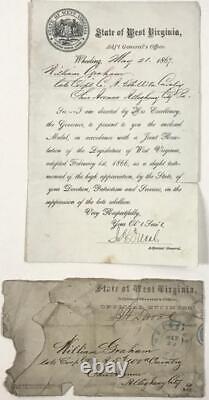 State of West Virginia,
Adj't General's Office,
Wheeling, May 31, 1867.
William Graham
late Corp'l Co. A,
Cavalry
Allegheny City Pa
Sir:—I am directed by His Excellency,
the Governor, to present you the enclosed
Medal, in accordance with a Joint Reso-
lution of the Legislature of West Virginia,
adopted February 1st, 1866, as a slight testi-
monial of the high appreciation, by the State, of
your Devotion, Patriotism and Services, in the
suppression of the late rebellion.
Very Respectfully,
Your Ob't Serv't
Adjutant General.
State of West Virginia,
Adjutant General's Office,
OFFICIAL BUSINESS
William Graham
late Corp
Cavalry
Allegheny City